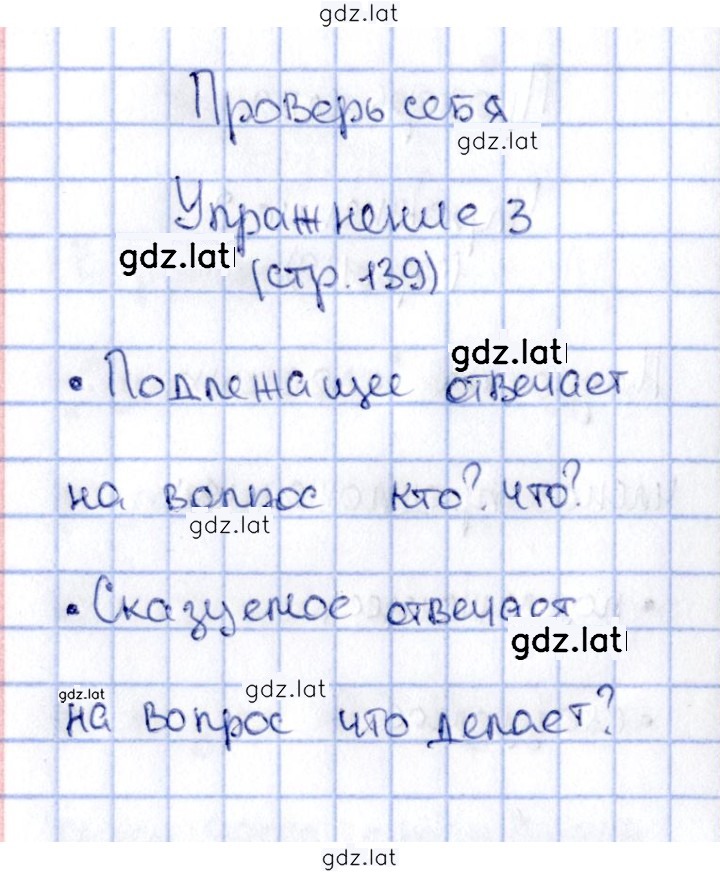 gdz.lat
Проверь себя
gdz.lat
Упражнение 3
gdz.lat
(стр. 139)
gdz.lat
• Подлежащее отвечает
на вопрос кто? что?
gdz.lat
• Сказуемое отвечает
gdz.lat
gdz.lat
gdz.lat
на вопрос что делает?
gdz.lat